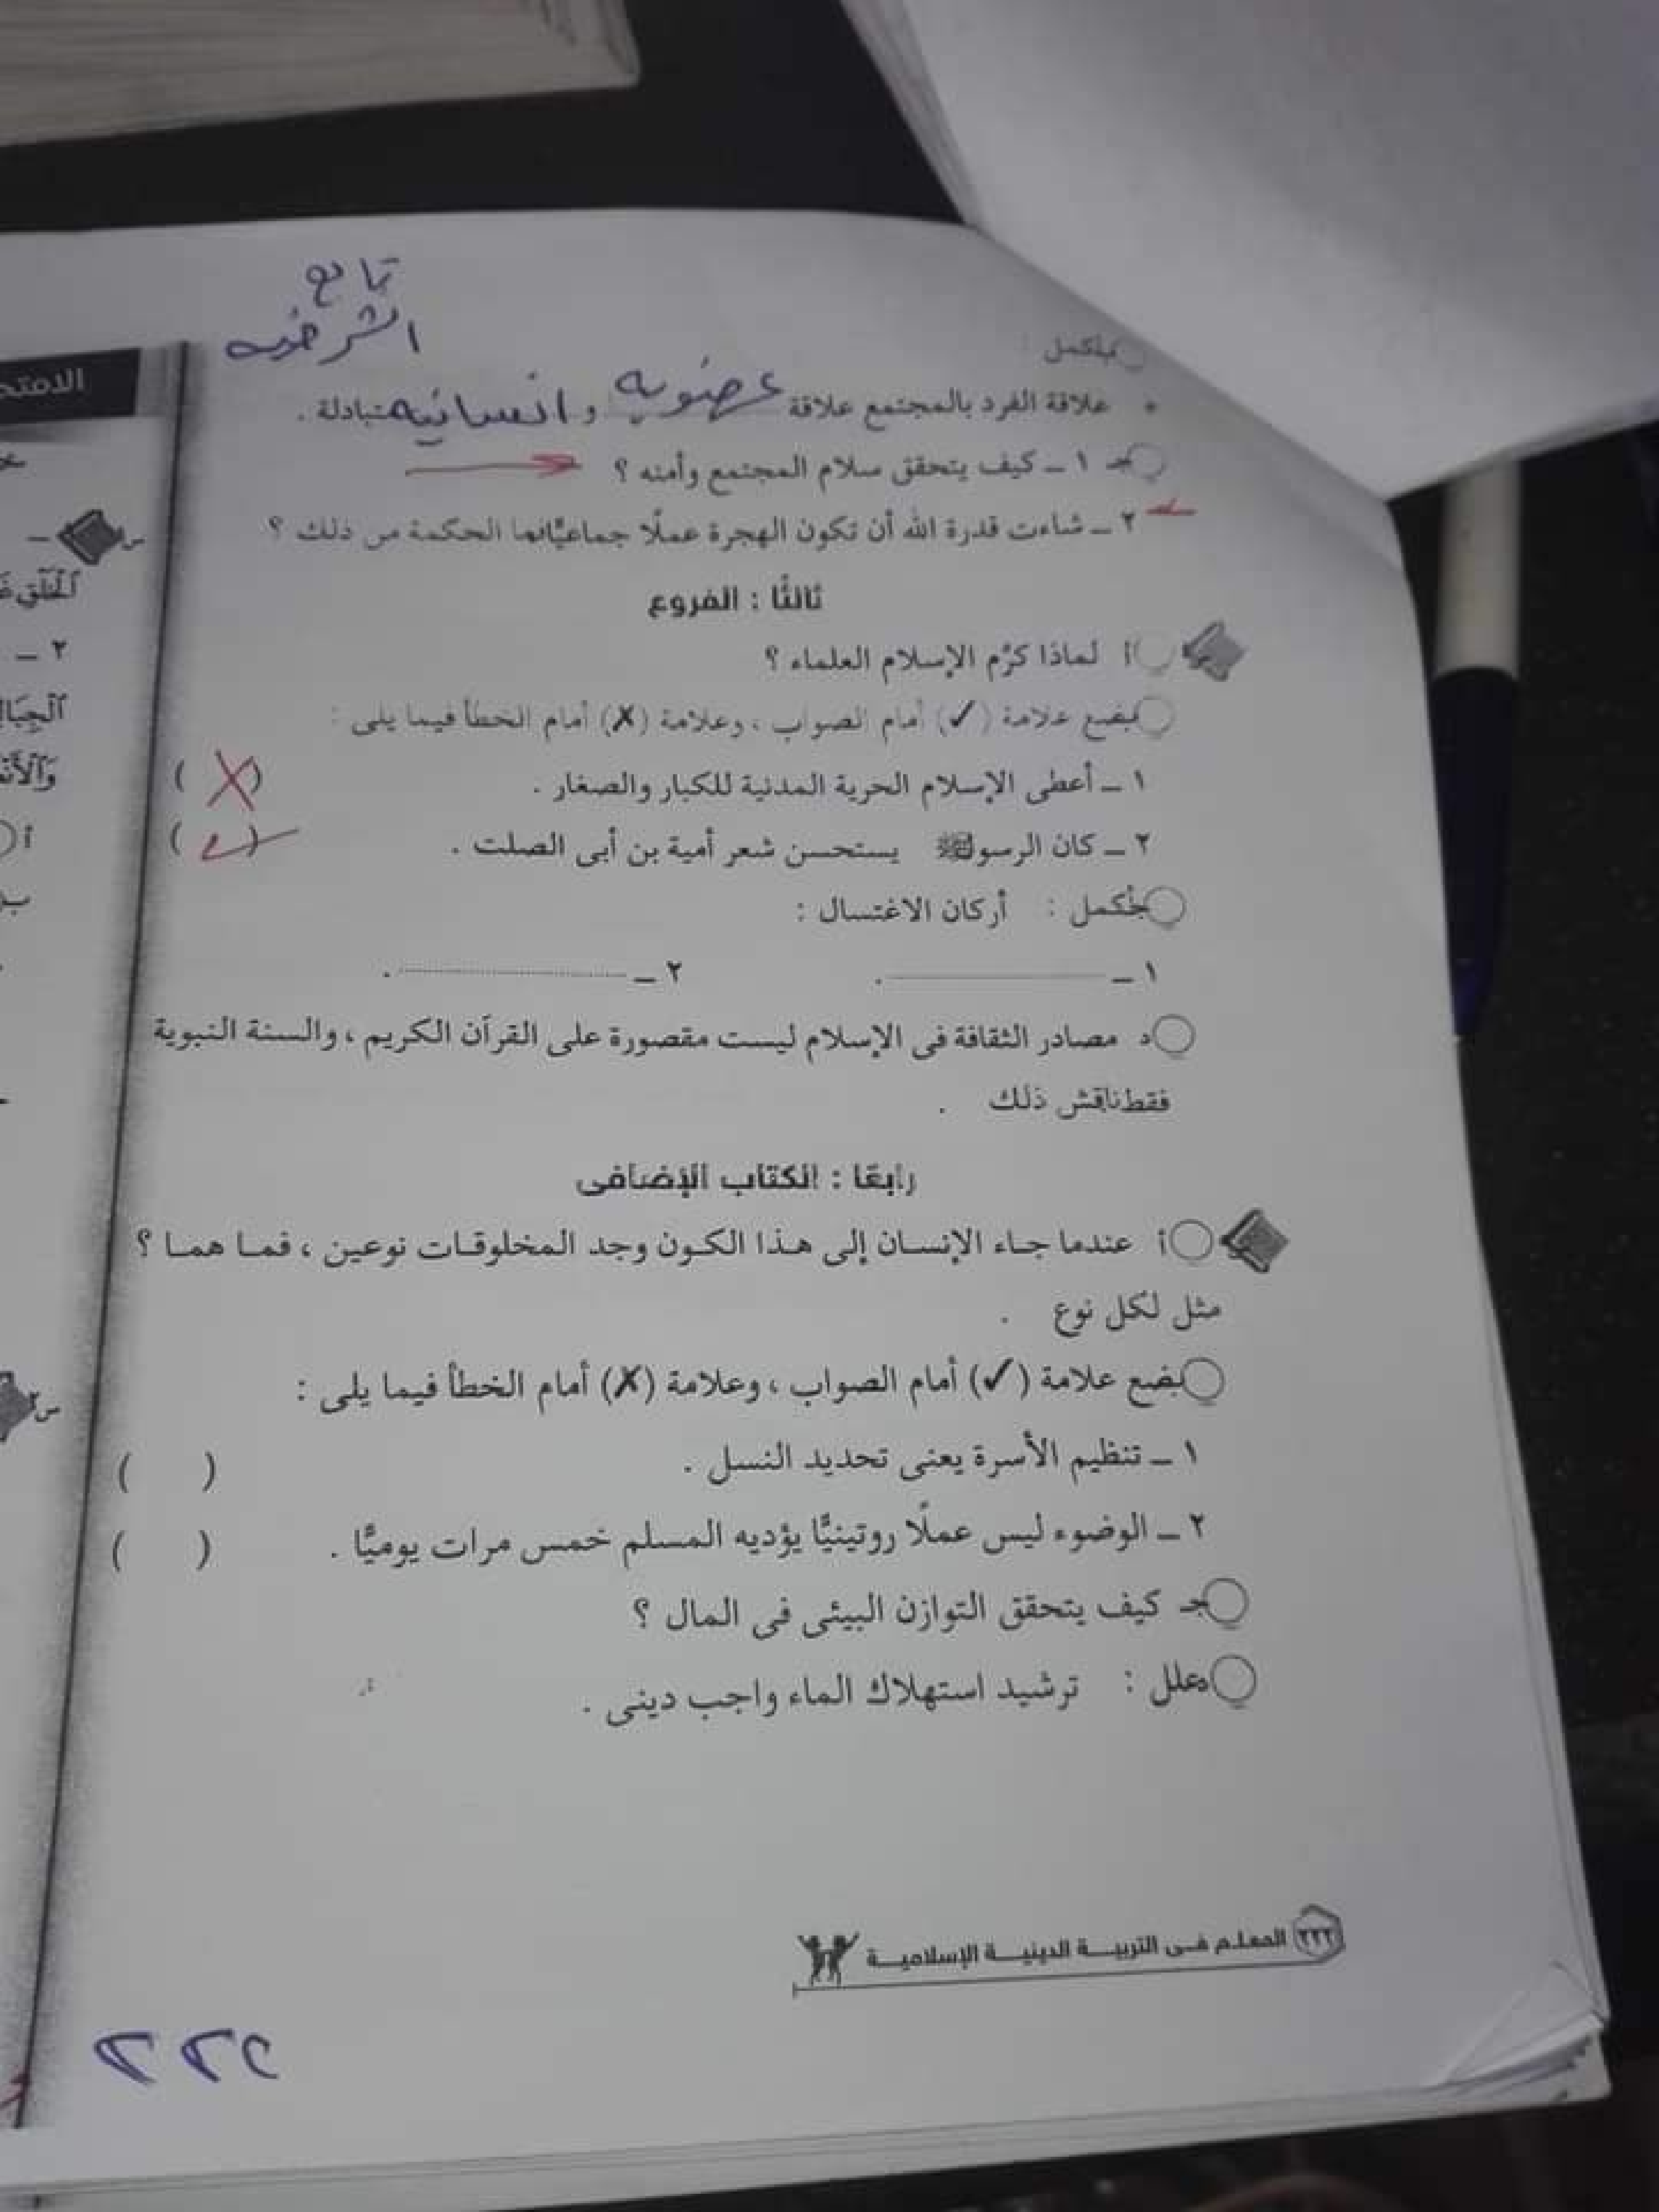 تابع
الشرقيه
ب أكمل :
• علاقة الفرد بالمجتمع علاقة عضويه و انسانيه متبادلة .
جـ ١ ـ كيف يتحقق سلام المجتمع وأمنه ؟
٢ ـ شاءت قدرة الله أن تكون الهجرة عملًا جماعيًّا فما الحكمة من ذلك ؟
ثالثًا : الفروع
أ لماذا كرَّم الإسلام العلماء ؟
ب ضع علامة (✓) أمام الصواب ، وعلامة (✗) أمام الخطأ فيما يلى :
١ ـ أعطى الإسلام الحرية المدنية للكبار والصغار . (✗)
٢ ـ كان الرسول ﷺ يستحسن شعر أمية بن أبى الصلت . (✓)
جـ أكمل : أركان الاغتسال :
١ ـ .................... . ٢ ـ .................... .
د مصادر الثقافة فى الإسلام ليست مقصورة على القرآن الكريم ، والسنة النبوية
فقط ناقش ذلك .
رابعًا : الكتاب الإضافى
أ عندما جاء الإنسان إلى هذا الكون وجد المخلوقات نوعين ، فما هما ؟
مثل لكل نوع .
ب ضع علامة (✓) أمام الصواب ، وعلامة (✗) أمام الخطأ فيما يلى :
١ ـ تنظيم الأسرة يعنى تحديد النسل . ( )
٢ ـ الوضوء ليس عملًا روتينيًّا يؤديه المسلم خمس مرات يوميًّا . ( )
جـ كيف يتحقق التوازن البيئى فى المال ؟
د علل : ترشيد استهلاك الماء واجب دينى .
٢٢٢ المعلم فى التربية الدينية الإسلامية
٢٢٢
س
ٱلْخَلْقِ
٢ ـ
ٱلْجِبَا
أ